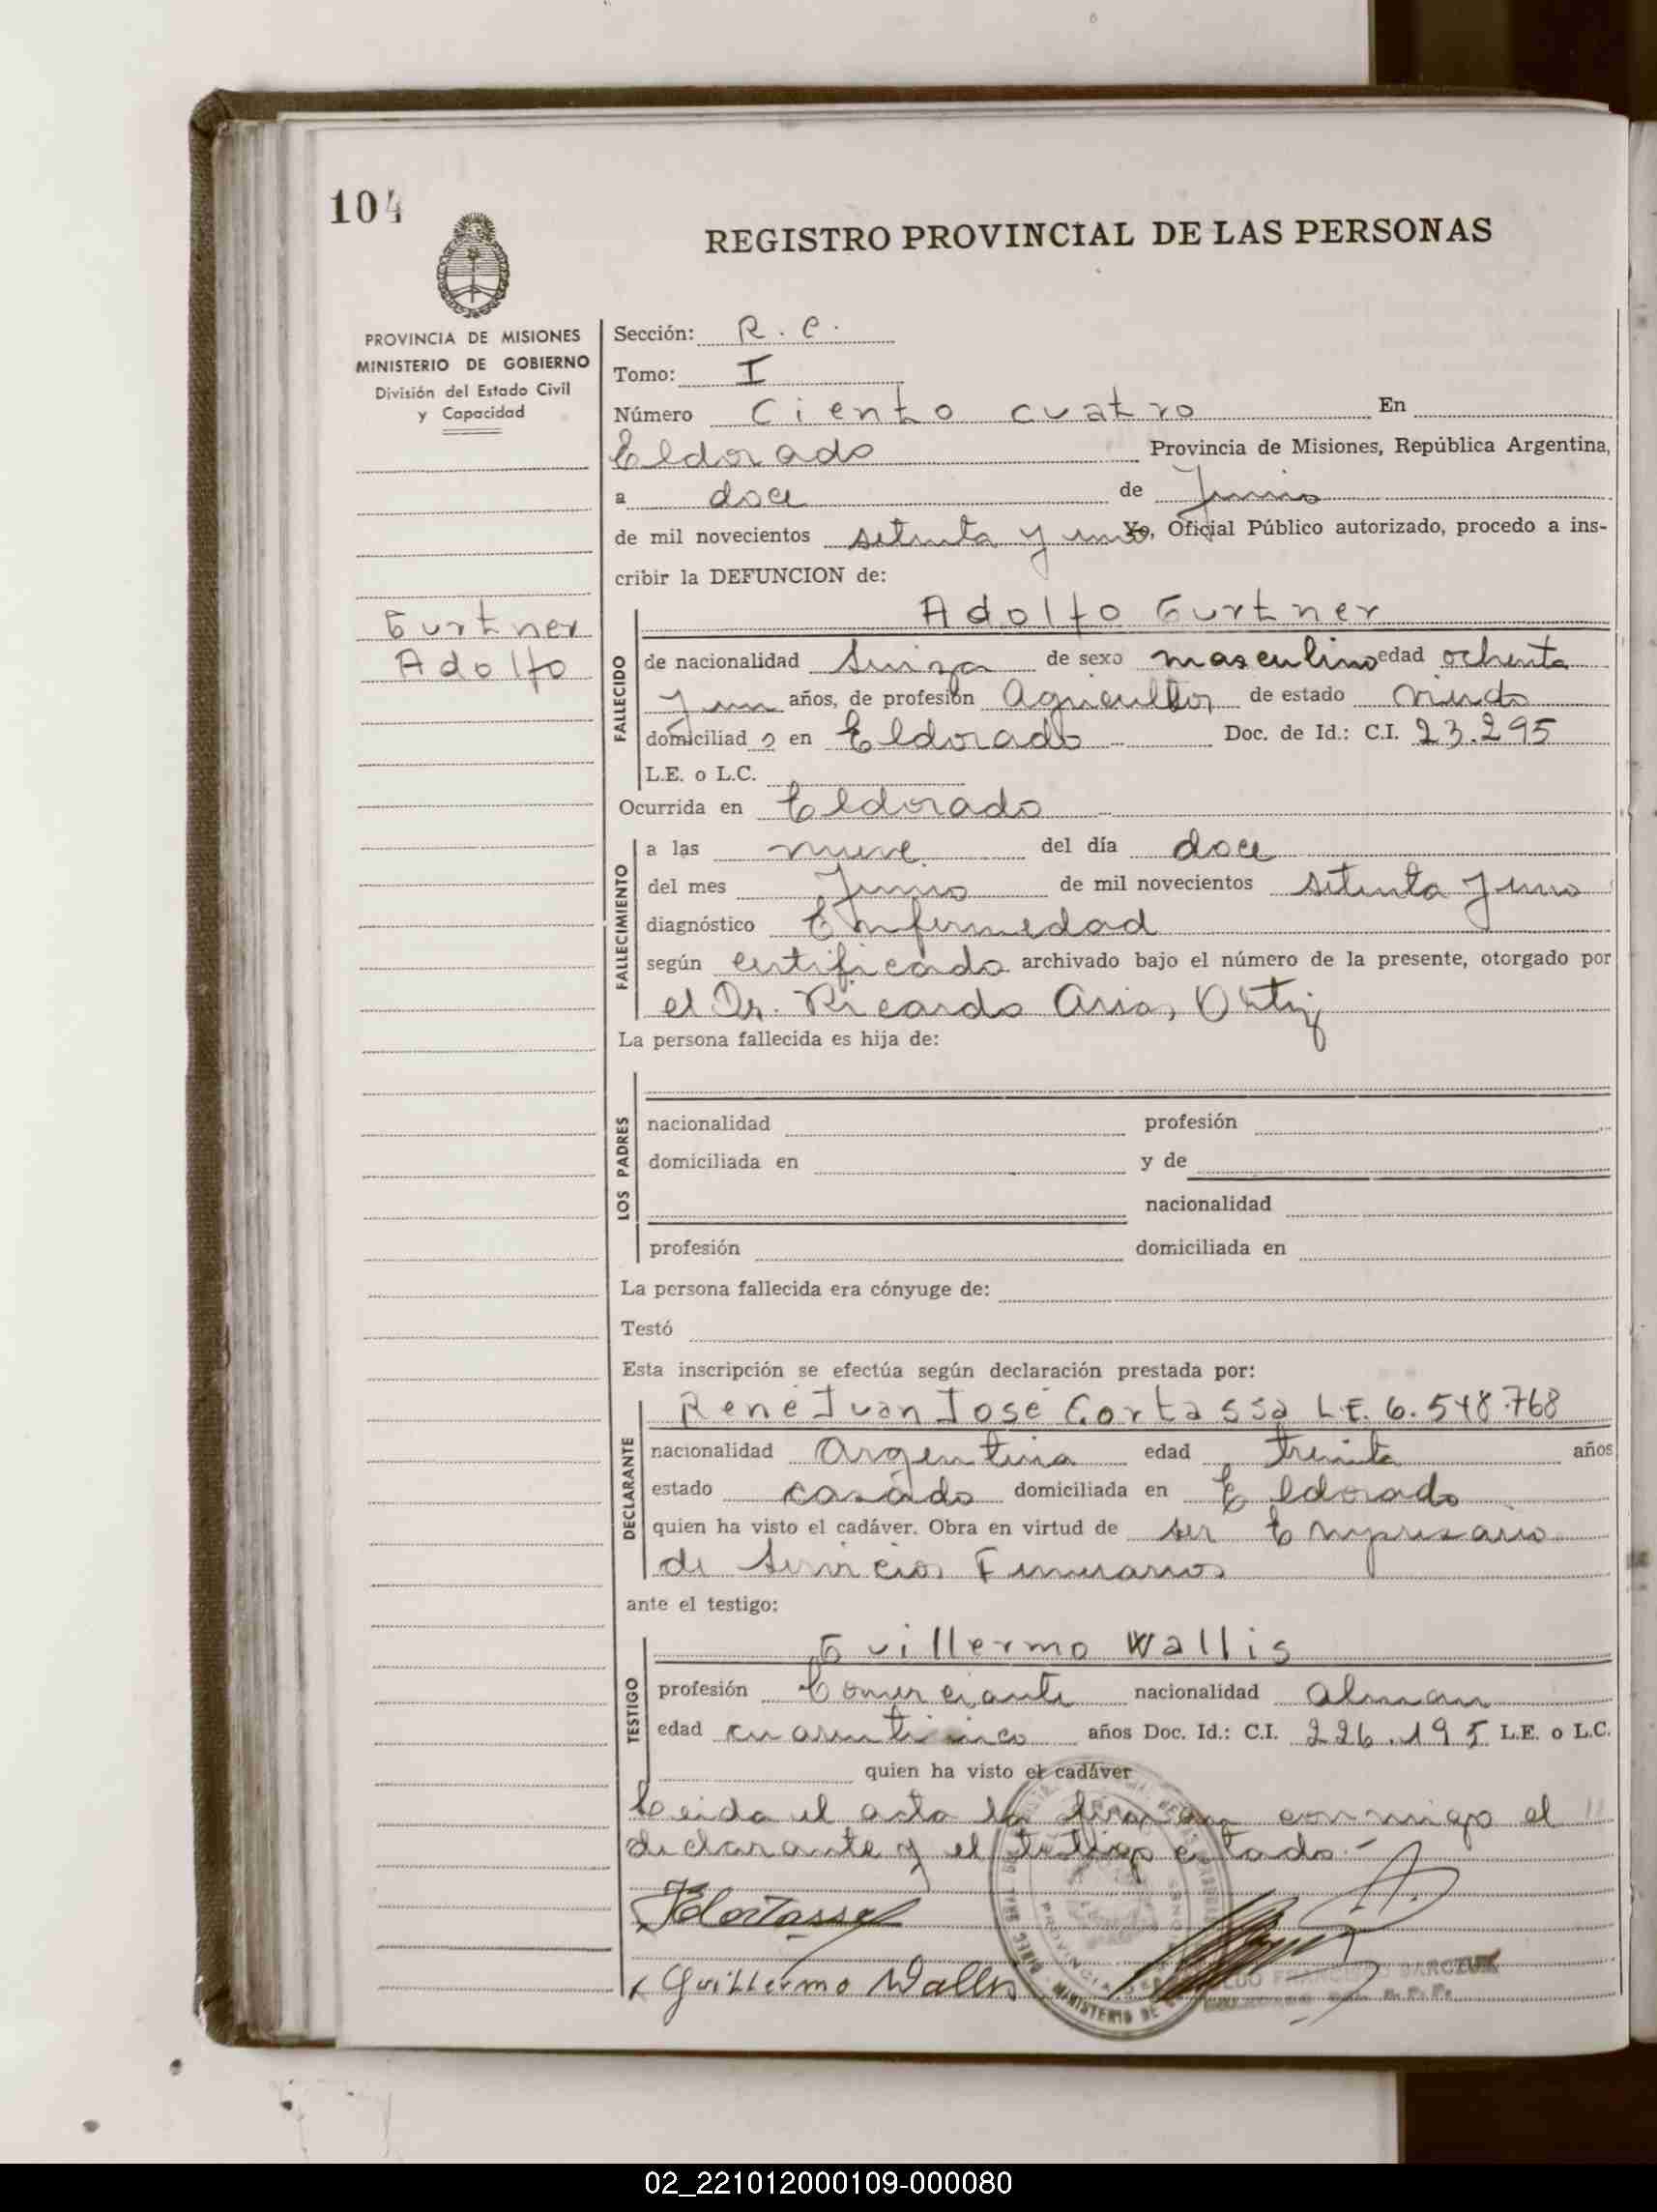 104
REGISTRO PROVINCIAL DE LAS PERSONAS
PROVINCIA DE MISIONES
MINISTERIO DE GOBIERNO
División del Estado Civil
y Capacidad
Gurtner
Adolfo
Sección: R. C.
Tomo: I
Número Ciento cuatro En
Eldorado Provincia de Misiones, República Argentina,
a doce de Junio
de mil novecientos setenta y uno Yo, Oficial Público autorizado, procedo a ins-
cribir la DEFUNCION de:
FALLECIDO
Adolfo Gurtner
de nacionalidad Suiza de sexo masculino edad ochenta
y un años, de profesión Agricultor de estado viudo
domiciliado en Eldorado Doc. de Id.: C.I. 23.295
L.E. o L.C.
Ocurrida en Eldorado
FALLECIMIENTO
a las nueve del día doce
del mes Junio de mil novecientos setenta y uno
diagnóstico Enfermedad
según certificado archivado bajo el número de la presente, otorgado por
el Dr. Ricardo Arias Ortiz
La persona fallecida es hija de:
LOS PADRES
nacionalidad profesión
domiciliada en y de
nacionalidad
profesión domiciliada en
La persona fallecida era cónyuge de:
Testó
Esta inscripción se efectúa según declaración prestada por:
DECLARANTE
René Juan José Cortassa L.E. 6.548.768
nacionalidad Argentina edad treinta años
estado casado domiciliada en Eldorado
quien ha visto el cadáver. Obra en virtud de ser Empresario
de Servicios Funerarios
ante el testigo:
TESTIGO
Guillermo Wallis
profesión Comerciante nacionalidad Alman
edad cuarenticinco años Doc. Id.: C.I. 226.195 L.E. o L.C.
quien ha visto el cadáver
Leida el acta la firman conmigo el
declarante y el testigo citado.-
Guillermo Wallis
MINISTERIO DE
02_221012000109-000080